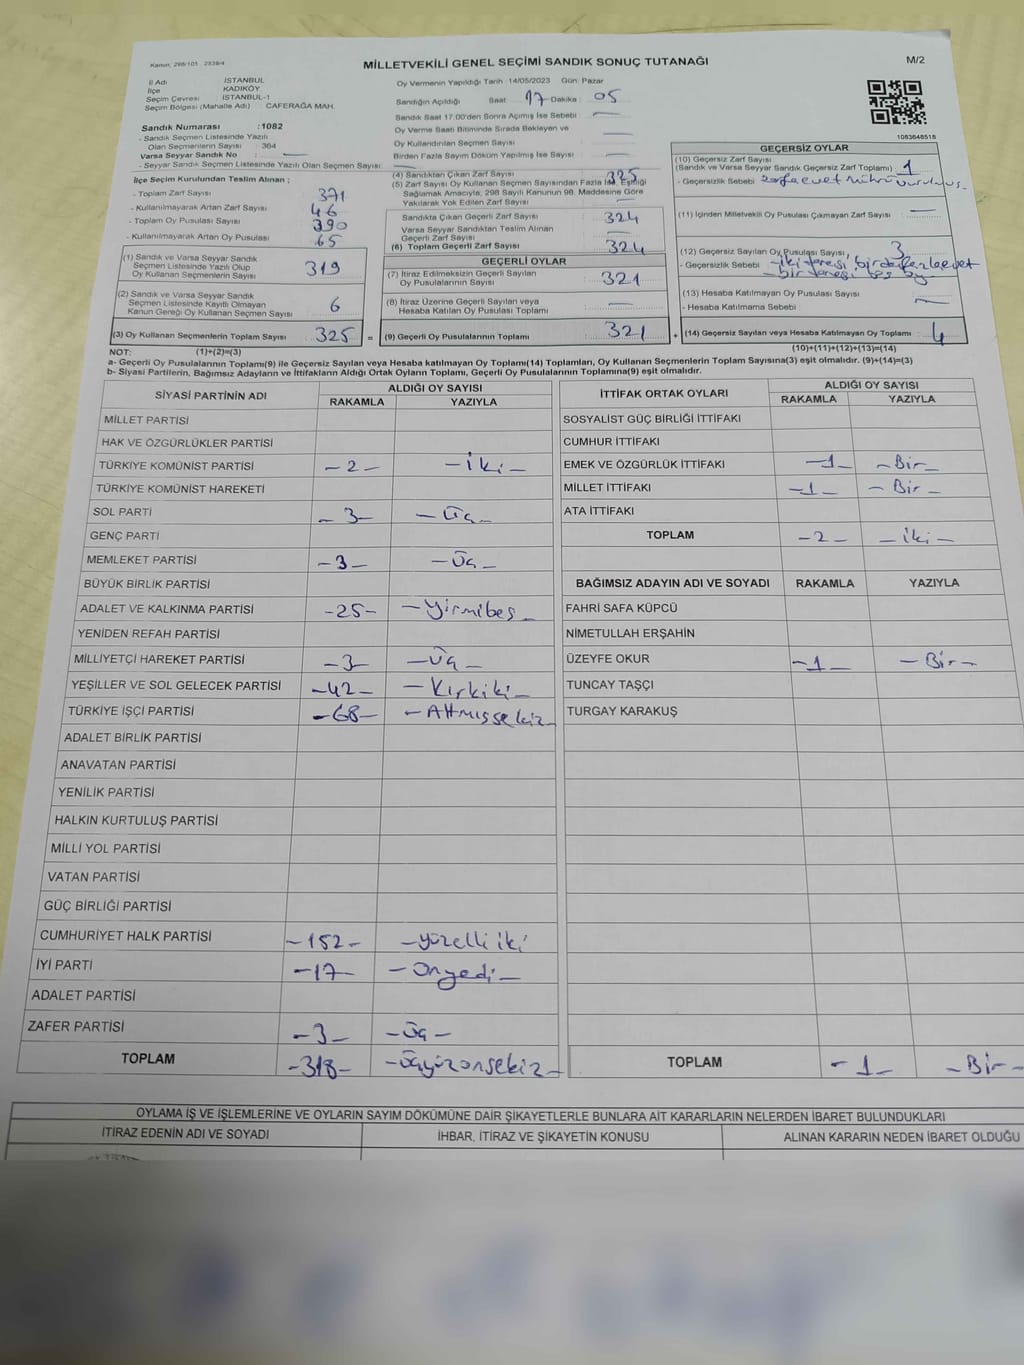 Kanun: 298/101 . 2839/4
MİLLETVEKİLİ GENEL SEÇİMİ SANDIK SONUÇ TUTANAĞI
M/2
İl Adı İSTANBUL
İlçe KADIKÖY
Seçim Çevresi İSTANBUL-1
Seçim Bölgesi (Mahalle Adı) : CAFERAĞA MAH.
Sandık Numarası :1082
- Sandık Seçmen Listesinde Yazılı
Olan Seçmenlerin Sayısı : 364
Varsa Seyyar Sandık No : —
- Seyyar Sandık Seçmen Listesinde Yazılı Olan Seçmen Sayısı: —
İlçe Seçim Kurulundan Teslim Alınan ;
- Toplam Zarf Sayısı 371
- Kullanılmayarak Artan Zarf Sayısı 46
- Toplam Oy Pusulası Sayısı 390
- Kullanılmayarak Artan Oy Pusulası 65
(1) Sandık ve Varsa Seyyar Sandık
Seçmen Listesinde Yazılı Olup
Oy Kullanan Seçmenlerin Sayısı 319
(2) Sandık ve Varsa Seyyar Sandık
Seçmen Listesinde Kayıtlı Olmayan
Kanun Gereği Oy Kullanan Seçmen Sayısı : 6
(3) Oy Kullanan Seçmenlerin Toplam Sayısı 325 =
Oy Vermenin Yapıldığı Tarih : 14/05/2023 Gün: Pazar
Sandığın Açıldığı Saat 17 Dakika : 05
Sandık Saat 17.00'den Sonra Açımış İse Sebebi : —
Oy Verme Saati Bitiminde Sırada Bekleyen ve
Oy Kullandırılan Seçmen Sayısı : —
Birden Fazla Sayım Döküm Yapılmış İse Sayısı : —
(4) Sandıktan Çıkan Zarf Sayısı 325
(5) Zarf Sayısı Oy Kullanan Seçmen Sayısından Fazla İse, Eşitliği
Sağlamak Amacıyle, 298 Sayılı Kanunun 98. Maddesine Göre
Yakılarak Yok Edilen Zarf Sayısı —
Sandıkta Çıkan Geçerli Zarf Sayısı 324
Varsa Seyyar Sandıktan Teslim Alınan
Geçerli Zarf Sayısı —
(6) Toplam Geçerli Zarf Sayısı 324
GEÇERLİ OYLAR
(7) İtiraz Edilmeksizin Geçerli Sayılan
Oy Pusulalarının Sayısı: 321
(8) İtiraz Üzerine Geçerli Sayılan veya
Hesaba Katılan Oy Pusulası Toplamı —
(9) Geçerli Oy Pusulalarının Toplamı 321 +
1083648518
GEÇERSİZ OYLAR
(10) Geçersiz Zarf Sayısı
(Sandık ve Varsa Seyyar Sandık Geçersiz Zarf Toplamı) 1
- Geçersizlik Sebebi zarfa evet mührü vurulmuş.
(11) İçinden Milletvekili Oy Pusulası Çıkmayan Zarf Sayısı : —
(12) Geçersiz Sayılan Oy Pusulası Sayısı, 3
- Geçersizlik Sebebi - iki tanesi birden fazla evet
- bir tanesi boş oy
(13) Hesaba Katılmayan Oy Pusulası Sayısı —
- Hesaba Katılmama Sebebi :
(14) Geçersiz Sayılan veya Hesaba Katılmayan Oy Toplamı : 4
NOT: (1)+(2)=(3) (10)+(11)+(12)+(13)=(14)
a- Geçerli Oy Pusulalarının Toplamı(9) ile Geçersiz Sayılan veya Hesaba katılmayan Oy Toplamı(14) Toplamları, Oy Kullanan Seçmenlerin Toplam Sayısına(3) eşit olmalıdır. (9)+(14)=(3)
b- Siyasi Partilerin, Bağımsız Adayların ve İttifakların Aldığı Ortak Oyların Toplamı, Geçerli Oy Pusulalarının Toplamına(9) eşit olmalıdır.
SİYASİ PARTİNİN ADI ALDIĞI OY SAYISI
RAKAMLA YAZIYLA
MİLLET PARTİSİ
HAK VE ÖZGÜRLÜKLER PARTİSİ
TÜRKİYE KOMÜNİST PARTİSİ -2- -İki-
TÜRKİYE KOMÜNİST HAREKETİ
SOL PARTİ -3- -Üç-
GENÇ PARTİ
MEMLEKET PARTİSİ -3- -Üç-
BÜYÜK BİRLİK PARTİSİ
ADALET VE KALKINMA PARTİSİ -25- -Yirmibeş-
YENİDEN REFAH PARTİSİ
MİLLİYETÇİ HAREKET PARTİSİ -3- -Üç-
YEŞİLLER VE SOL GELECEK PARTİSİ -42- -Kırkiki-
TÜRKİYE İŞÇİ PARTİSİ -68- -Altmışsekiz-
ADALET BİRLİK PARTİSİ
ANAVATAN PARTİSİ
YENİLİK PARTİSİ
HALKIN KURTULUŞ PARTİSİ
MİLLİ YOL PARTİSİ
VATAN PARTİSİ
GÜÇ BİRLİĞİ PARTİSİ
CUMHURİYET HALK PARTİSİ -152- -yüzelli iki
İYİ PARTİ -17- -Onyedi-
ADALET PARTİSİ
ZAFER PARTİSİ -3- -Üç-
TOPLAM -318- -Üçyüzonsekiz-
İTTİFAK ORTAK OYLARI ALDIĞI OY SAYISI
RAKAMLA YAZIYLA
SOSYALİST GÜÇ BİRLİĞİ İTTİFAKI
CUMHUR İTTİFAKI
EMEK VE ÖZGÜRLÜK İTTİFAKI -1- -Bir-
MİLLET İTTİFAKI -1- -Bir-
ATA İTTİFAKI
TOPLAM -2- -İki-
BAĞIMSIZ ADAYIN ADI VE SOYADI RAKAMLA YAZIYLA
FAHRİ SAFA KÜPCÜ
NİMETULLAH ERŞAHİN
ÜZEYFE OKUR -1- -Bir-
TUNCAY TAŞÇI
TURGAY KARAKUŞ
TOPLAM -1- -Bir-
OYLAMA İŞ VE İŞLEMLERİNE VE OYLARIN SAYIM DÖKÜMÜNE DAİR ŞİKAYETLERLE BUNLARA AİT KARARLARIN NELERDEN İBARET BULUNDUKLARI
İTİRAZ EDENİN ADI VE SOYADI
İHBAR, İTİRAZ VE ŞİKAYETİN KONUSU
ALINAN KARARIN NEDEN İBARET OLDUĞU